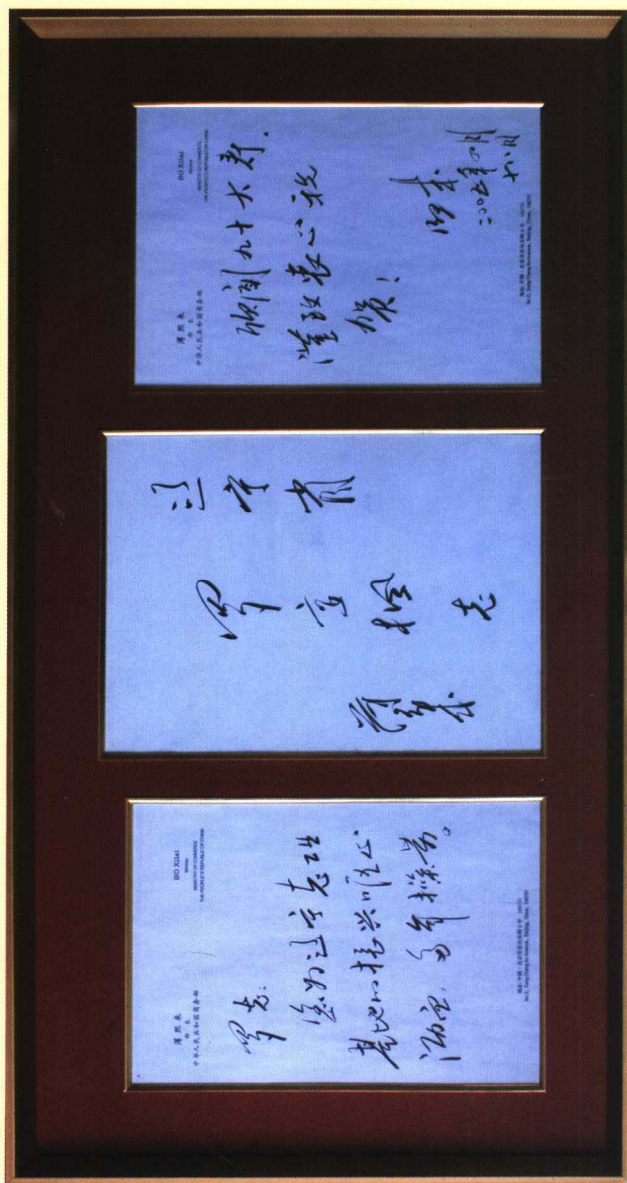 薄熙来
部长
中华人民共和国商务部
BO Xilai
Minister
MINISTRY OF COMMERCE
THE PEOPLE'S REPUBLIC OF CHINA
罗老：
您为辽宁老工业
基地的振兴呕心
沥血，多年操劳。
地址:中国·北京东长安街2号 100731
No.2, Dong Chang An Avenue, Beijing, China, 100731
辽宁省
罗定枫老
薄熙来
薄熙来
部长
中华人民共和国商务部
BO Xilai
Minister
MINISTRY OF COMMERCE
THE PEOPLE'S REPUBLIC OF CHINA
欣闻九十大寿，
谨致衷心祝
贺！
熙来
二00五年四月
十八日
地址:中国·北京东长安街2号 100731
No.2, Dong Chang An Avenue, Beijing, China, 100731